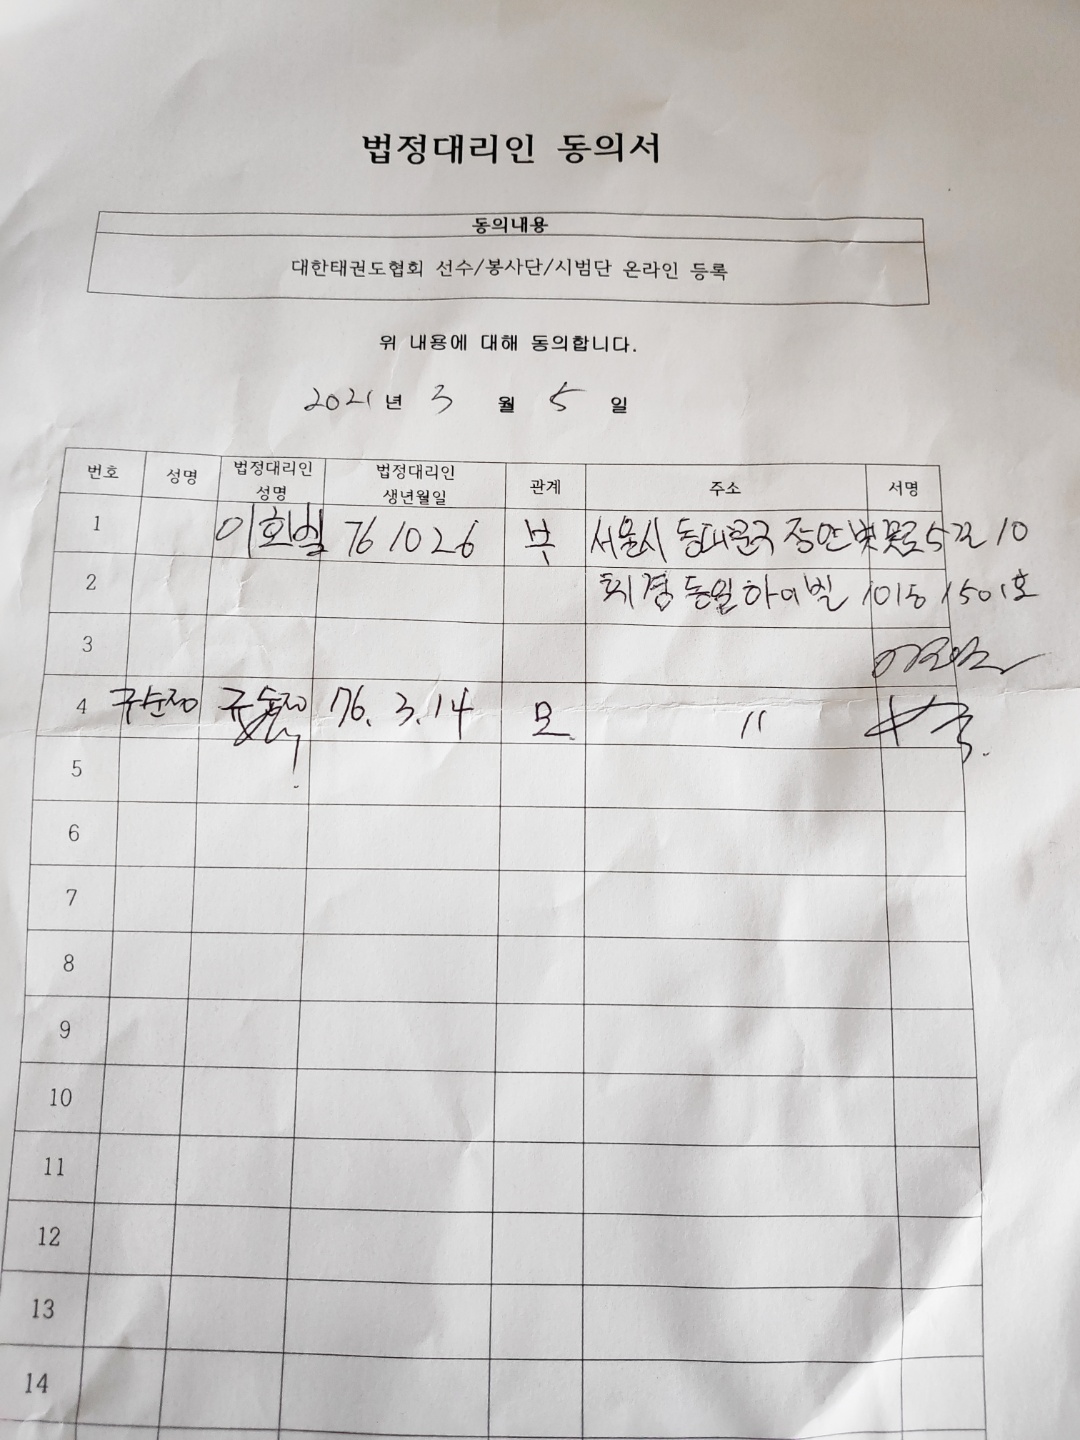 법정대리인 동의서
동의내용
대한태권도협회 선수/봉사단/시범단 온라인 등록
위 내용에 대해 동의합니다.
2021년 3 월 5 일
번호 성명 법정대리인 성명 법정대리인 생년월일 관계 주소 서명
1 761026 부 서울시 동대문구 장안벚꽃로5길 10
2 휘경동일하이빌 101동 1501호
3
4 구순정 76. 3. 14 모 〃
5
6
7
8
9
10
11
12
13
14